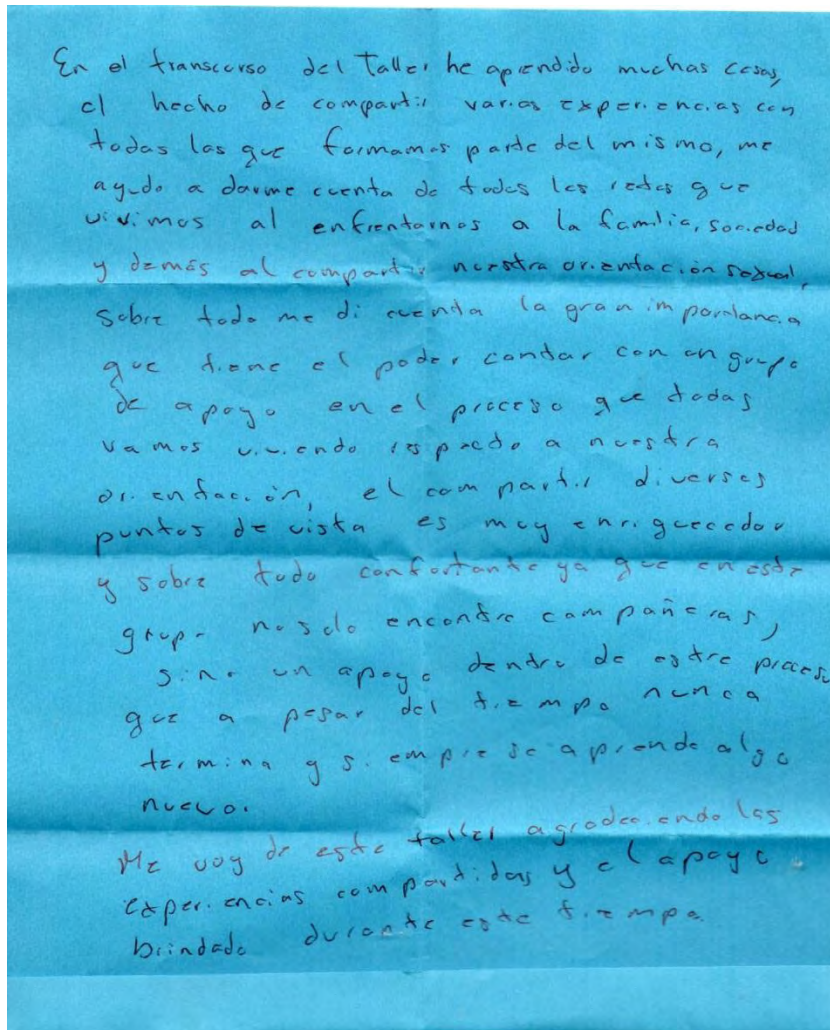 En el transcurso del Taller he aprendido muchas cosas,
el hecho de compartir varias experiencias con
todas las que formamos parte del mismo, me
ayudo a darme cuenta de todos los retos que
vivimos al enfrentarnos a la familia, sociedad
y demás al compartir nuestra orientación sexual,
sobre todo me di cuenta la gran importancia
que tiene el poder contar con un grupo
de apoyo en el proceso que todas
vamos viviendo respecto a nuestra
orientación, el compartir diversos
puntos de vista es muy enriquecedor
y sobre todo confortante ya que en este
grupo no solo encontre compañeras,
sino un apoyo dentro de estre proceso
que a pesar del tiempo nunca
termina y siempre se aprende algo
nuevo.
Me voy de este taller agradeciendo las
experiencias compartidas y el apoyo
brindado durante este tiempo.